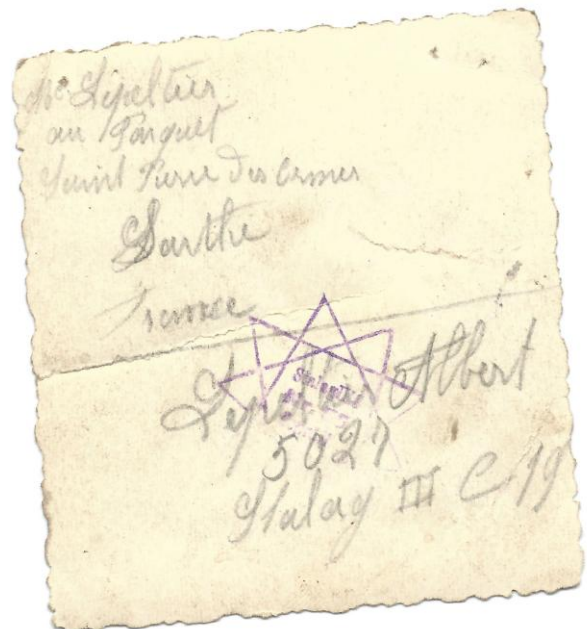 Mr Lepeltier
au Parquet
Saint Pierre des ormes
Sarthe
France
Lepeltier Albert
5027
Stalag III C 19